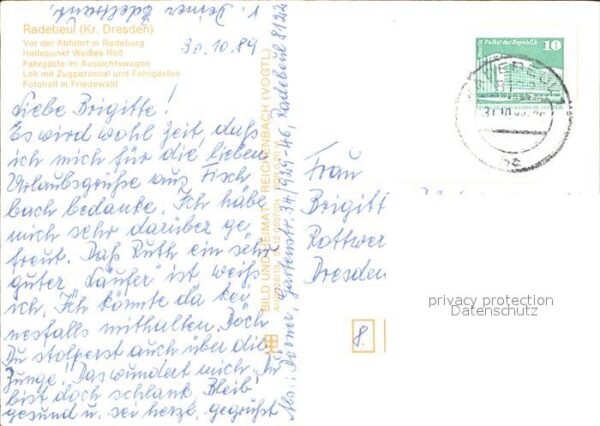 Radebeul (Kr. Dresden)
Vor der Abfahrt in Radeburg
Haltepunkt Weißes Roß
Fahrgäste im Aussichtswagen
Lok mit Zugpersonal und Fahrgästen
Fotohalt in Friedewald
30.10.89
Liebe Brigitte!
Es wird wohl Zeit, daß
ich mich für die lieben
Urlaubsgrüße aus Fisch
bach bedanke. Ich habe
mich sehr darüber ge
freut. Daß Ruth ein sehr
guter "Läufer" ist weiß
ich. Ich könnte da kei
nesfalls mithalten. Doch
Du stolperst auch über die
Zunge. Das wundert mich, Du
bist doch schlank. Bleib
gesund u. sei herzl. gegrüßt
v. Deiner
BILD UND HEIMAT REICHENBACH (VOGTL)
Abs.: Dörner, Gartenstr. 34/929-46, Radebeul 8122
Palast der Republik
10
Frau
Brigitt
Rottwer
Dresden
8
privacy protection
Datenschutz